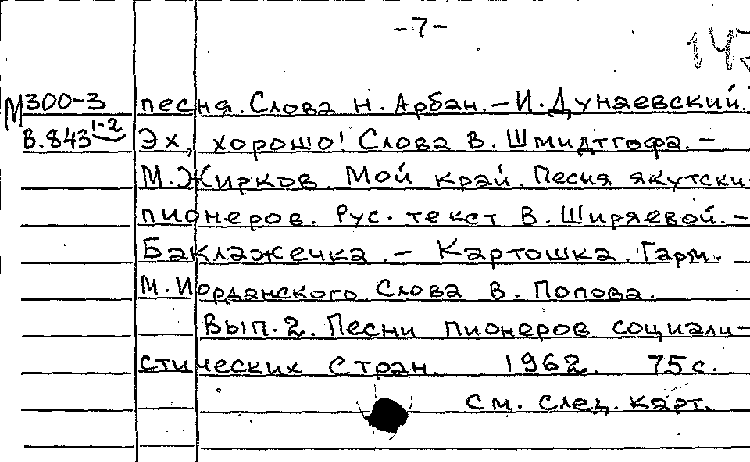 -7-
143
М300-3 песня. Слова Н. Арбан. – И. Дунаевский.
В.843 1-2 Эх, хорошо! Слова В. Шмидтгофа. –
М. Жирков. Мой край. Песня якутски
пионеров. Рус. текст В. Ширяевой. –
Баклажечка. – Картошка. Гарм.
М. Иорданского Слова В. Попова.
Вып. 2. Песни пионеров социали-
стических стран. 1962. 75 с.
См. след. карт.